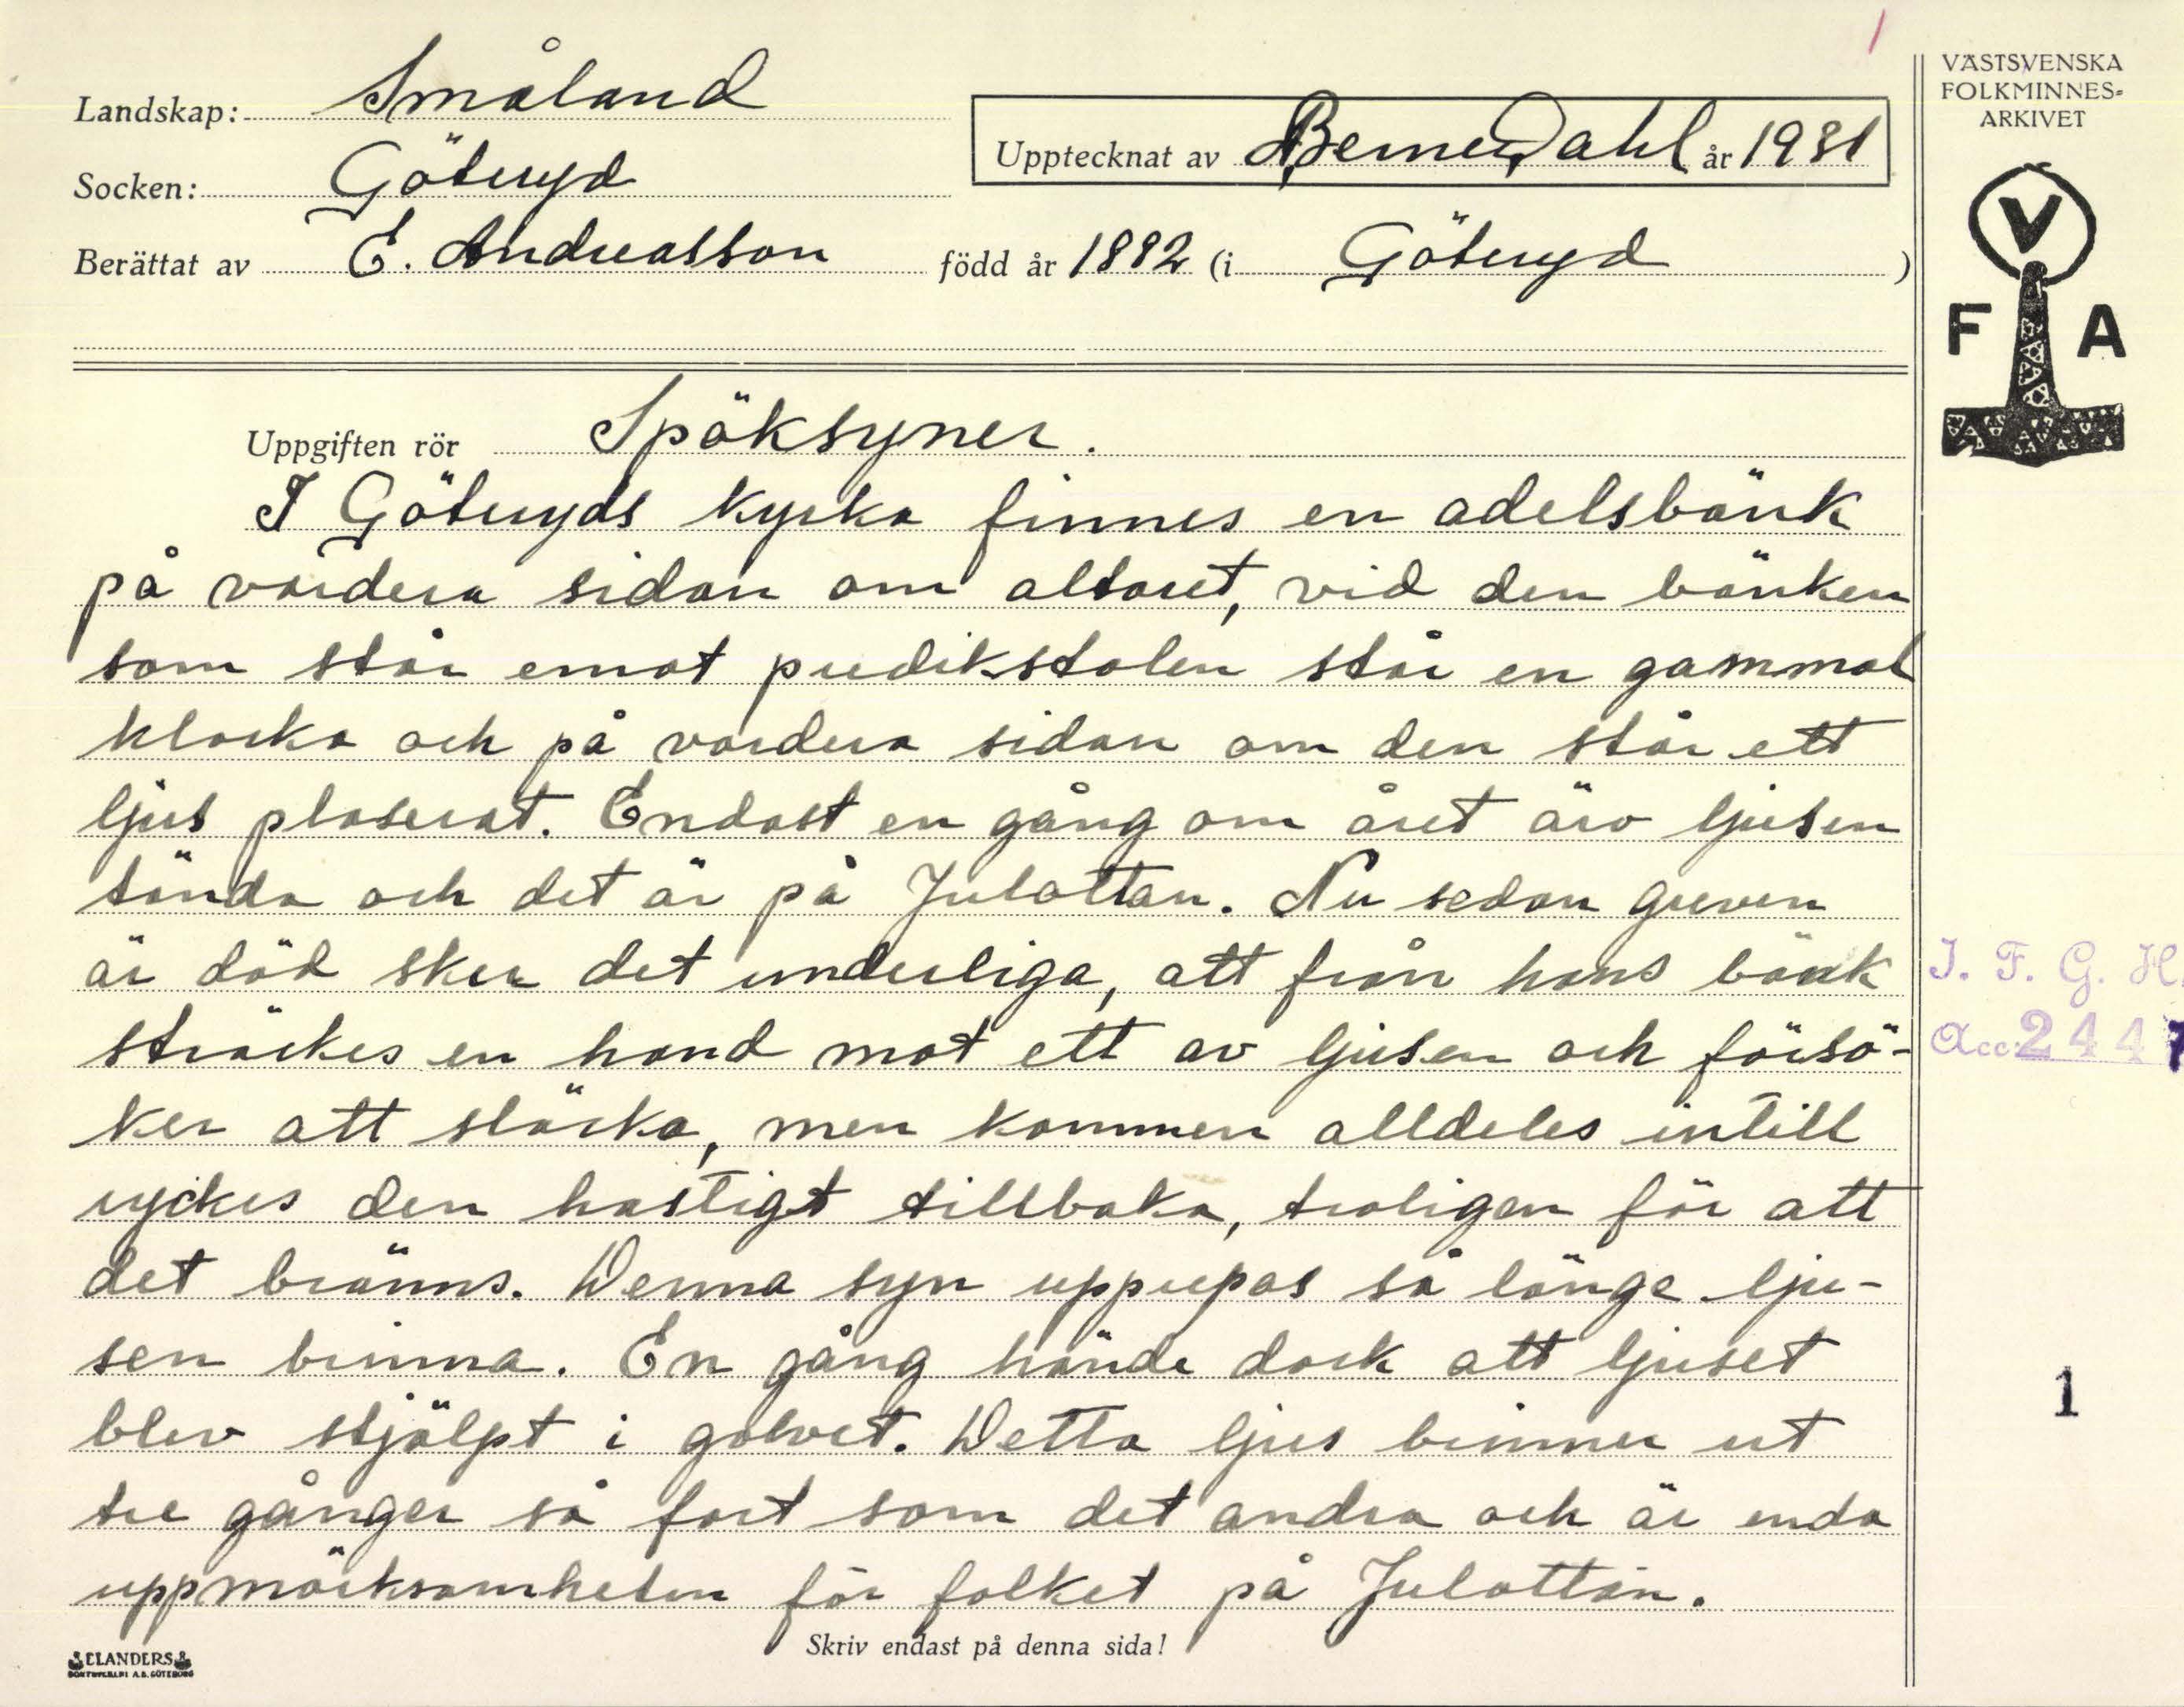 1
VÄSTSVENSKA
FOLKMINNES-
ARKIVET
Landskap: Småland
Upptecknat av Berner Dahl år 1931
Socken: Göteryd
Berättat av E. Andreasson född år 1892 (i Göteryd)
V
F A
Uppgiften rör Spöksyner.
I Göteryds kyrka finnes en adelsbänk
på vardera sidan om altaret, vid den bänken
som står emot predikstolen står en gammal
klocka och på vardera sidan om den står ett
ljus plaserat. Endast en gång om året äro ljusen
tända och det är på Julottan. Nu sedan greven
är död sker det underliga, att från hans bänk
sträckes en hand mot ett av ljusen och försö-
ker att släcka, men kommen alldeles intill
ryckes den hastigt tillbaka, troligen för att
det bränns. Denna syn upprepas så länge lju-
sen brinna. En gång hände dock att ljuset
blev stjälpt i golvet. Detta ljus brinner ut
tre gånger så fort som det andra och är enda
uppmärksamheten för folket på Julottan.
I. F. G. H.
Acc: 2447
1
Skriv endast på denna sida!
ELANDERS
BOKTRYCKERI A.B. GÖTEBORG